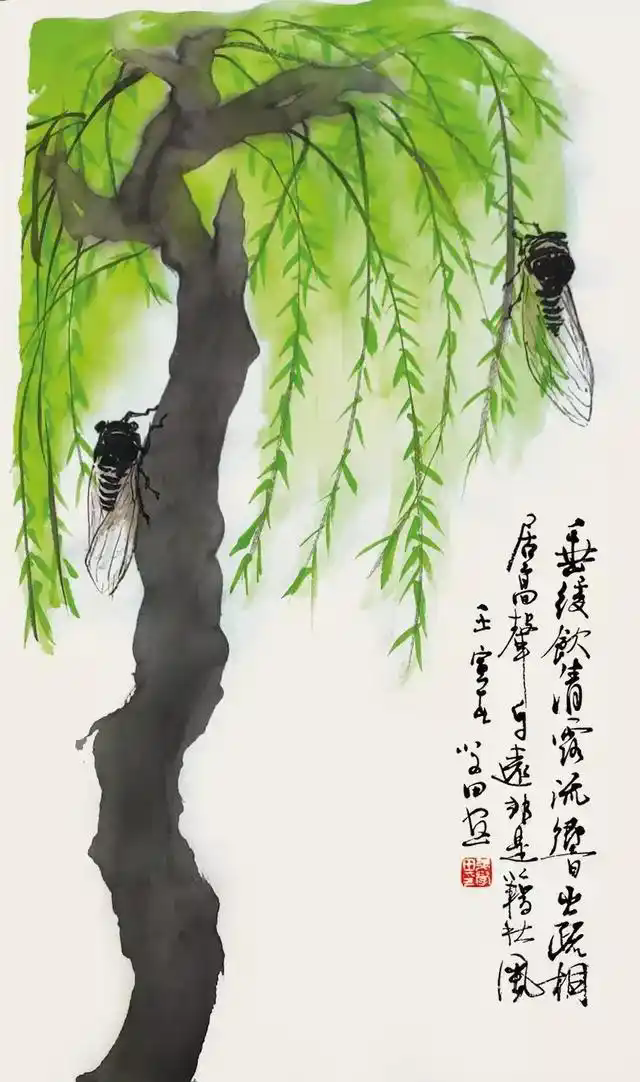 垂緌飲清露流響出疏桐
居高聲自遠非是籍秋風
壬寅 学田